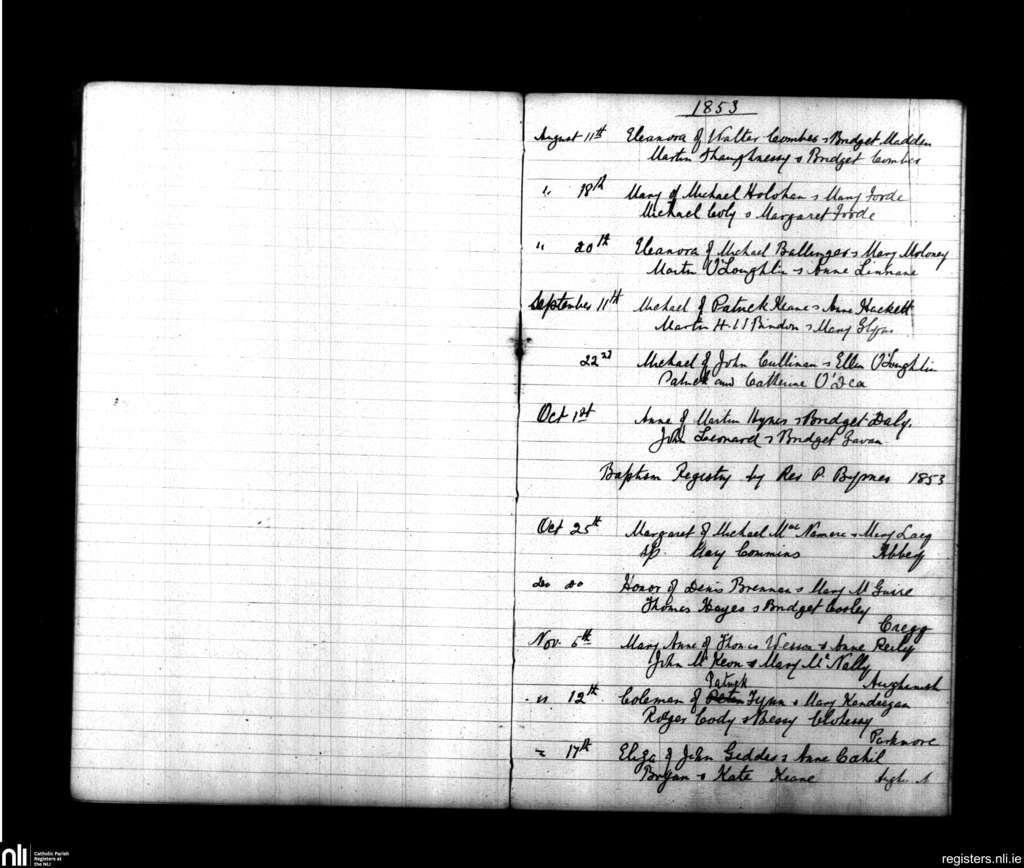 1853
August 11th Eleanora of Walter Combes & Bridget Madden
Martin Shaughnessy & Bridget Combes
" 18th Mary of Michael Holohan & Mary Forde
Michael Coly & Margaret Forde
" 20th Eleanora of Michael Ballenger & Mary Moloney
Martin O'Loughlin & Anne Linnane
September 11th Michael of Patrick Keane & Anne Hackett
Martin Bindon & Mary Glynn
22nd Michael of John Cullinan & Ellen O'Loughlin
Patrick and Catherine O'Dea
Oct 1st Anne of Martin Hynes & Bridget Daly.
John Leonard & Bridget Gavan
Baptism Registry by Rev P. Byrnes 1853
Oct 25th Margaret of Michael Mac Namara & Mary Lacy
Sp. Mary Commins Abbey
do do Honor of Denis Brennan & Mary McGuire
Thomas Hayes & Bridget Cooley
Cregg
Nov. 6th Mary Anne of Thomas & Anne Reily
John McKeon & Mary McNally
Aughinish
Patrick
" 12th Coleman of Peter Fynn & Mary Kandregan
Roger Cody & Bessy Clohessy
Parkmore
" 17th Eliza of John Geddes & Anne Cahil
Bryan & Kate Keane
nli Catholic Parish
Registers at
the NLI
registers.nli.ie